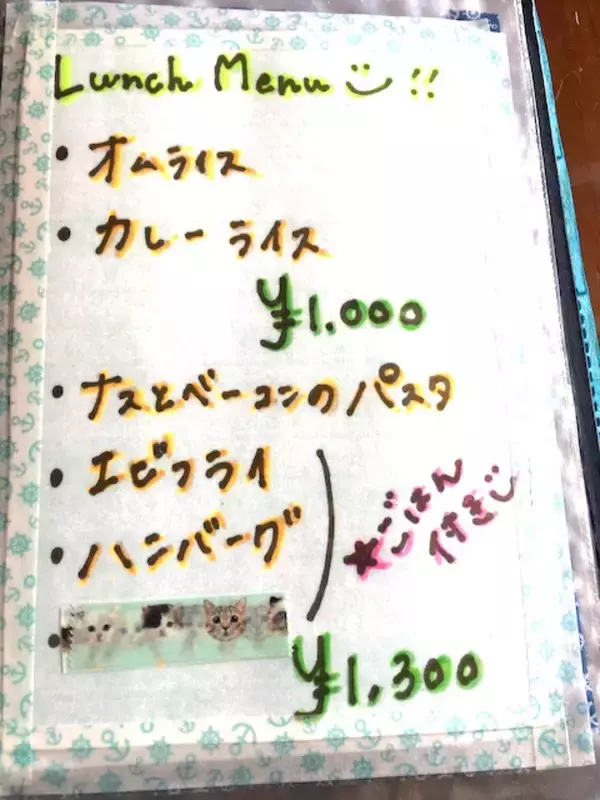 Lunch Menu !!
• オムライス
• カレーライス
¥1.000
• ナスとベーコンのパスタ
• エビフライ
• ハンバーグ
★ごはん
付き
•
¥1,300